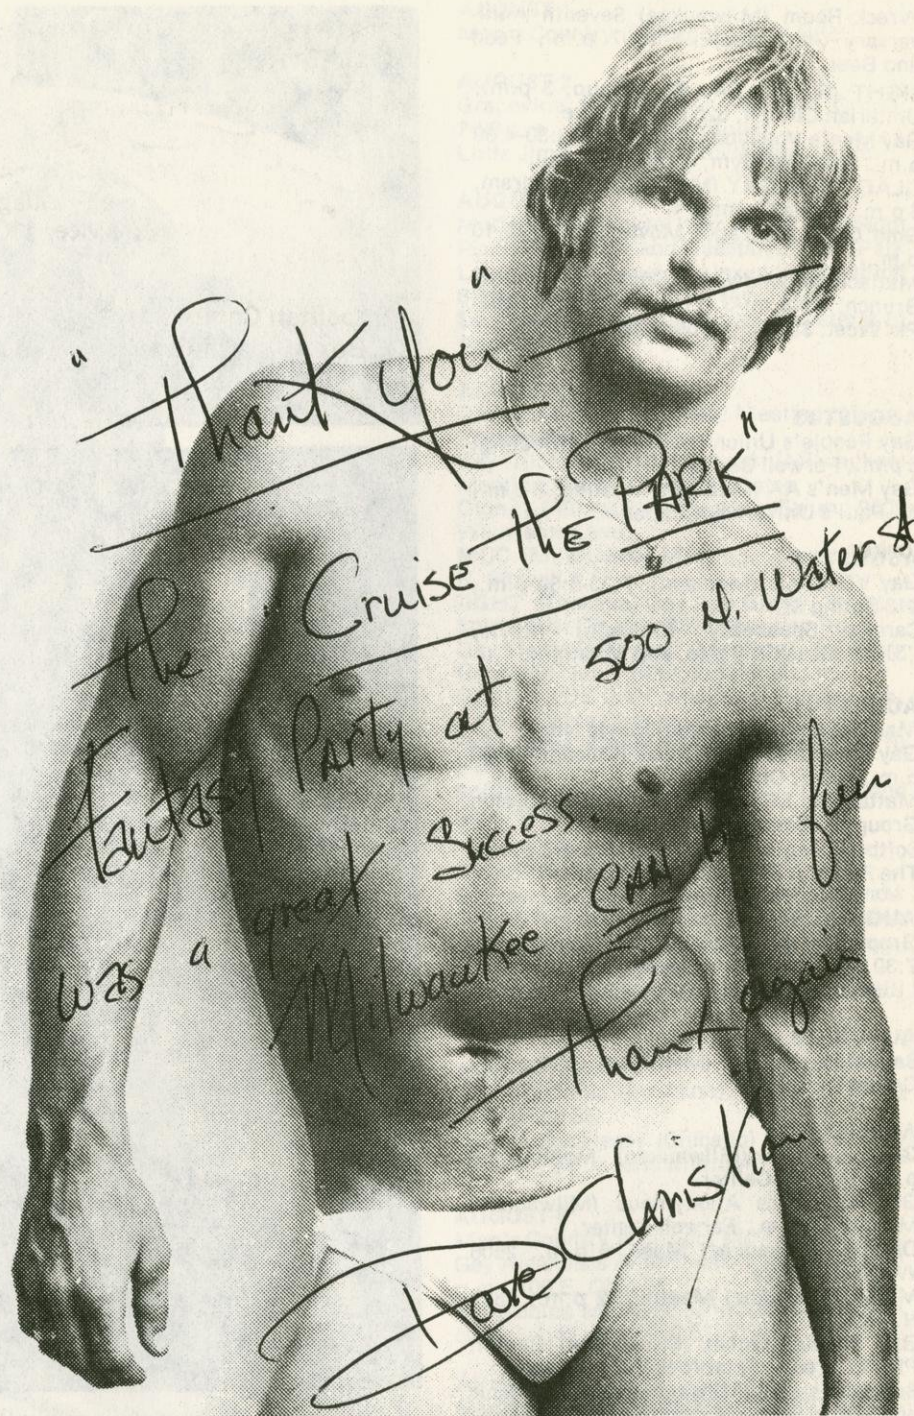 "Thank You"
the "Cruise the PARK"
Fantasy Party at 500 N. Water st
was a great Success.
Milwaukee CAN be fun
Thank again
Dave Christian